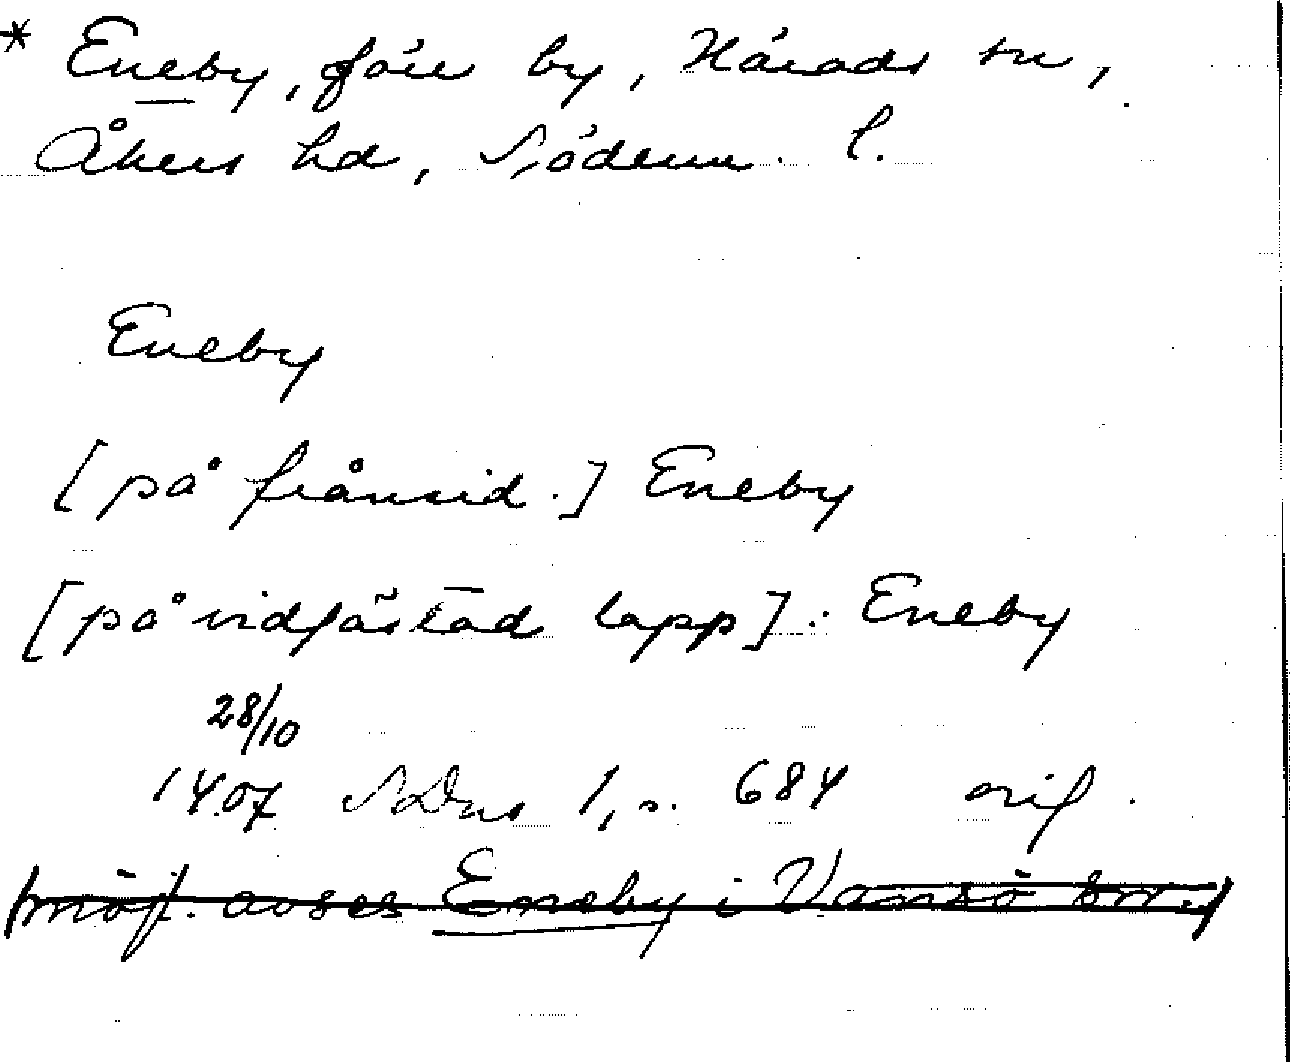 * Eneby, förr by, Härads sn,
Åkers hd, Söderm. l.
Eneby
[på frånsid.] Eneby
[på vidfästad lapp]: Eneby
28/10
1407 SDns 1, s. 684 orig.
(möjl. avses Eneby i Vansö sn.)